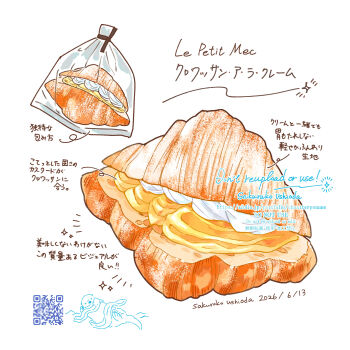 Le Petit Mec
クロワッサン・ア・ラ・クレーム
独特な
包み方
クリームと一緒でも
軽さやふんわり
生地
こてっとした固めの
カスタードが
クロワッサンに
合う。
Don't reupload or use!
sakurako ushioda
美味しくないわけがない
この質量あるビジュアルが
良い!!
sakurako ushioda 2026/6/13